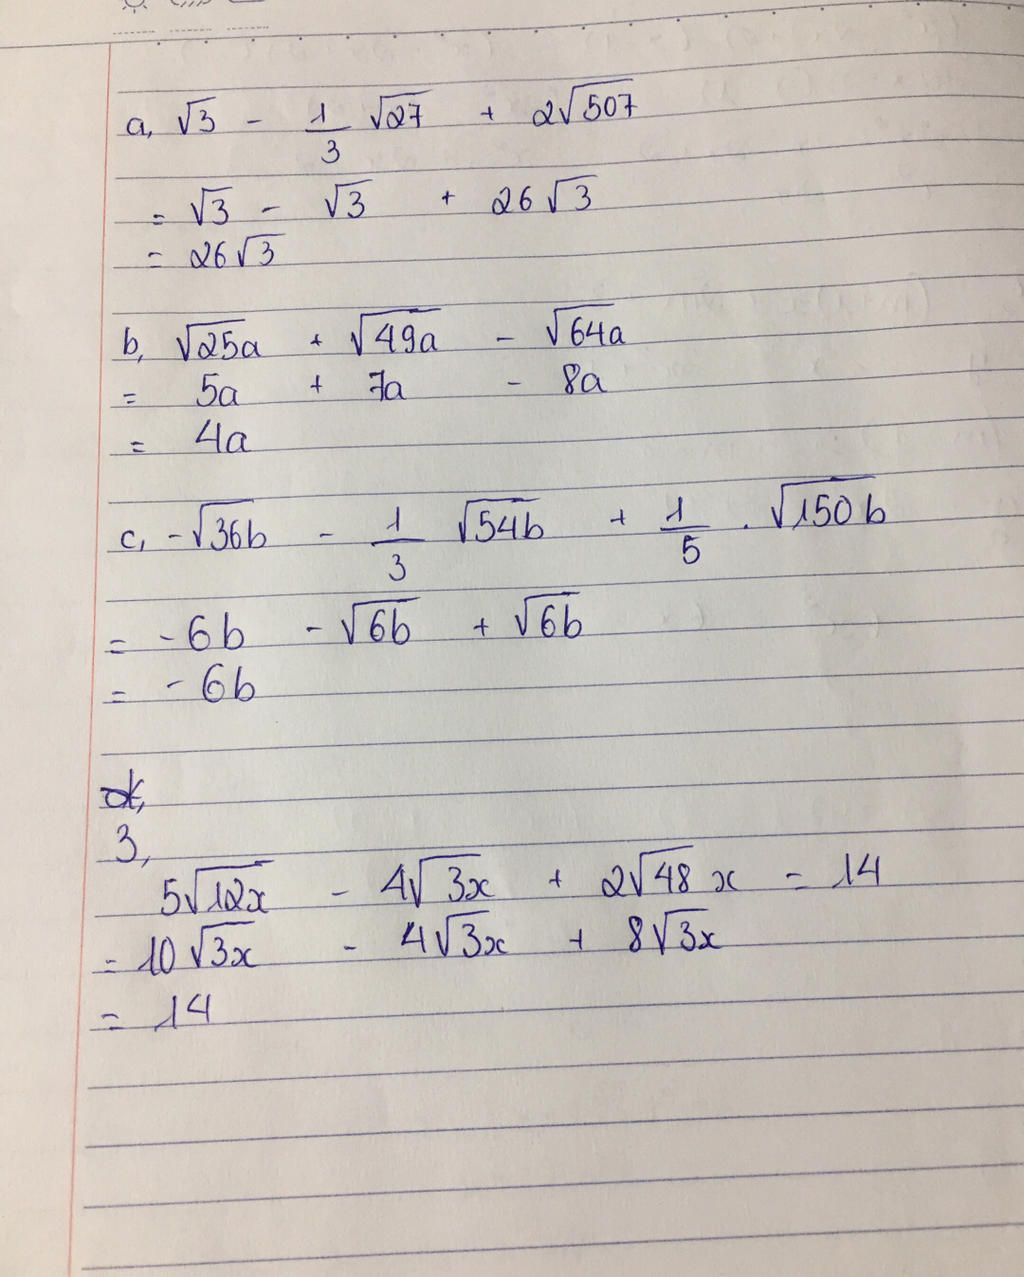 a, √3 - 1/3 √27 + 2√507
= √3 - √3 + 26√3
= 26√3
b, √25a + √49a - √64a
= 5a + 7a - 8a
= 4a
c, -√36b - 1/3 √54b + 1/5 . √150b
= -6b - √6b + √6b
= -6b
3,
5√12x - 4√3x + 2√48x = 14
= 10√3x - 4√3x + 8√3x
= 14